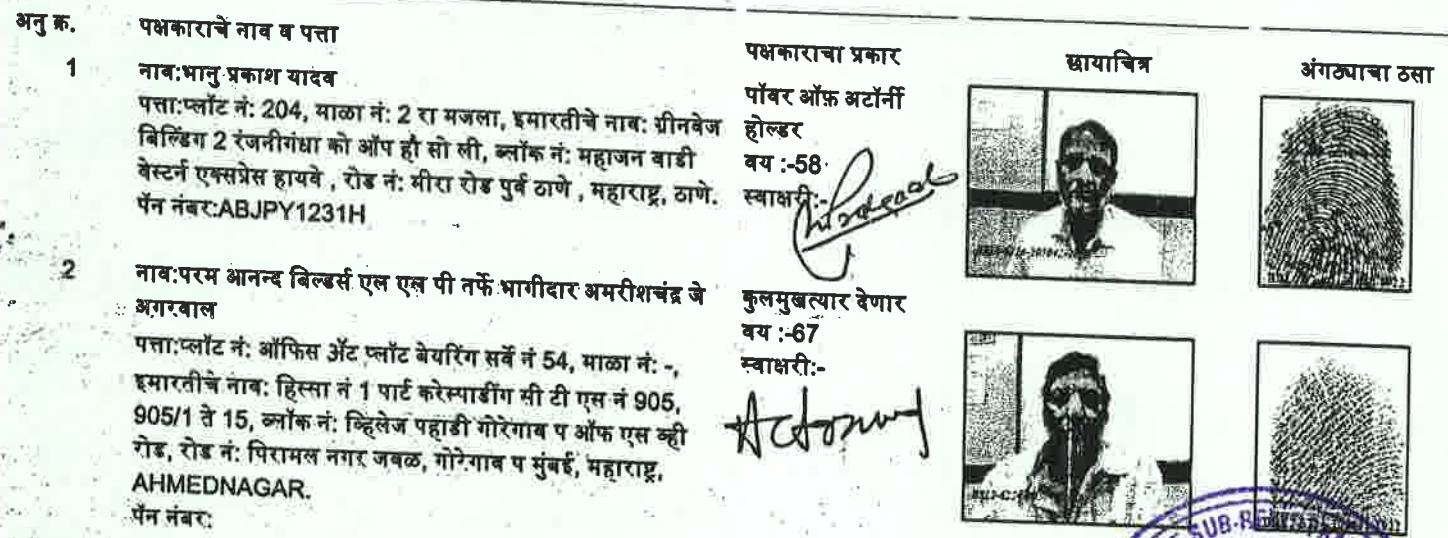 अनु क्र. पक्षकाराचे नाव व पत्ता पक्षकाराचा प्रकार छायाचित्र अंगठ्याचा ठसा
1 नाव:भानु प्रकाश यादव
पत्ता:प्लॉट नं: 204, माळा नं: 2 रा मजला, इमारतीचे नाव: ग्रीनवेज
बिल्डिंग 2 रंजनीगंधा को ऑप हौ सो ली, ब्लॉक नं: महाजन वाडी
वेस्टर्न एक्सप्रेस हायवे , रोड नं: मीरा रोड पुर्व ठाणे , महाराष्ट्र, ठाणे.
पॅन नंबर:ABJPY1231H
पॉवर ऑफ़ अटॉर्नी
होल्डर
वय :-58
स्वाक्षरी:-
2 नाव:परम आनन्द बिल्डर्स एल एल पी तर्फे भागीदार अमरीशचंद्र जे
अगरवाल
पत्ता:प्लॉट नं: ऑफिस अ‍ॅट प्लॉट बेयरिंग सर्वे नं 54, माळा नं: -,
इमारतीचे नाव: हिस्सा नं 1 पार्ट करेस्पाडींग सी टी एस नं 905,
905/1 ते 15, ब्लॉक नं: व्हिलेज पहाडी गोरेगाव प ऑफ एस व्ही
रोड, रोड नं: पिरामल नगर जवळ, गोरेगाव प मुंबई, महाराष्ट्र,
AHMEDNAGAR.
पॅन नंबर:
कुलमुखत्यार देणार
वय :-67
स्वाक्षरी:-